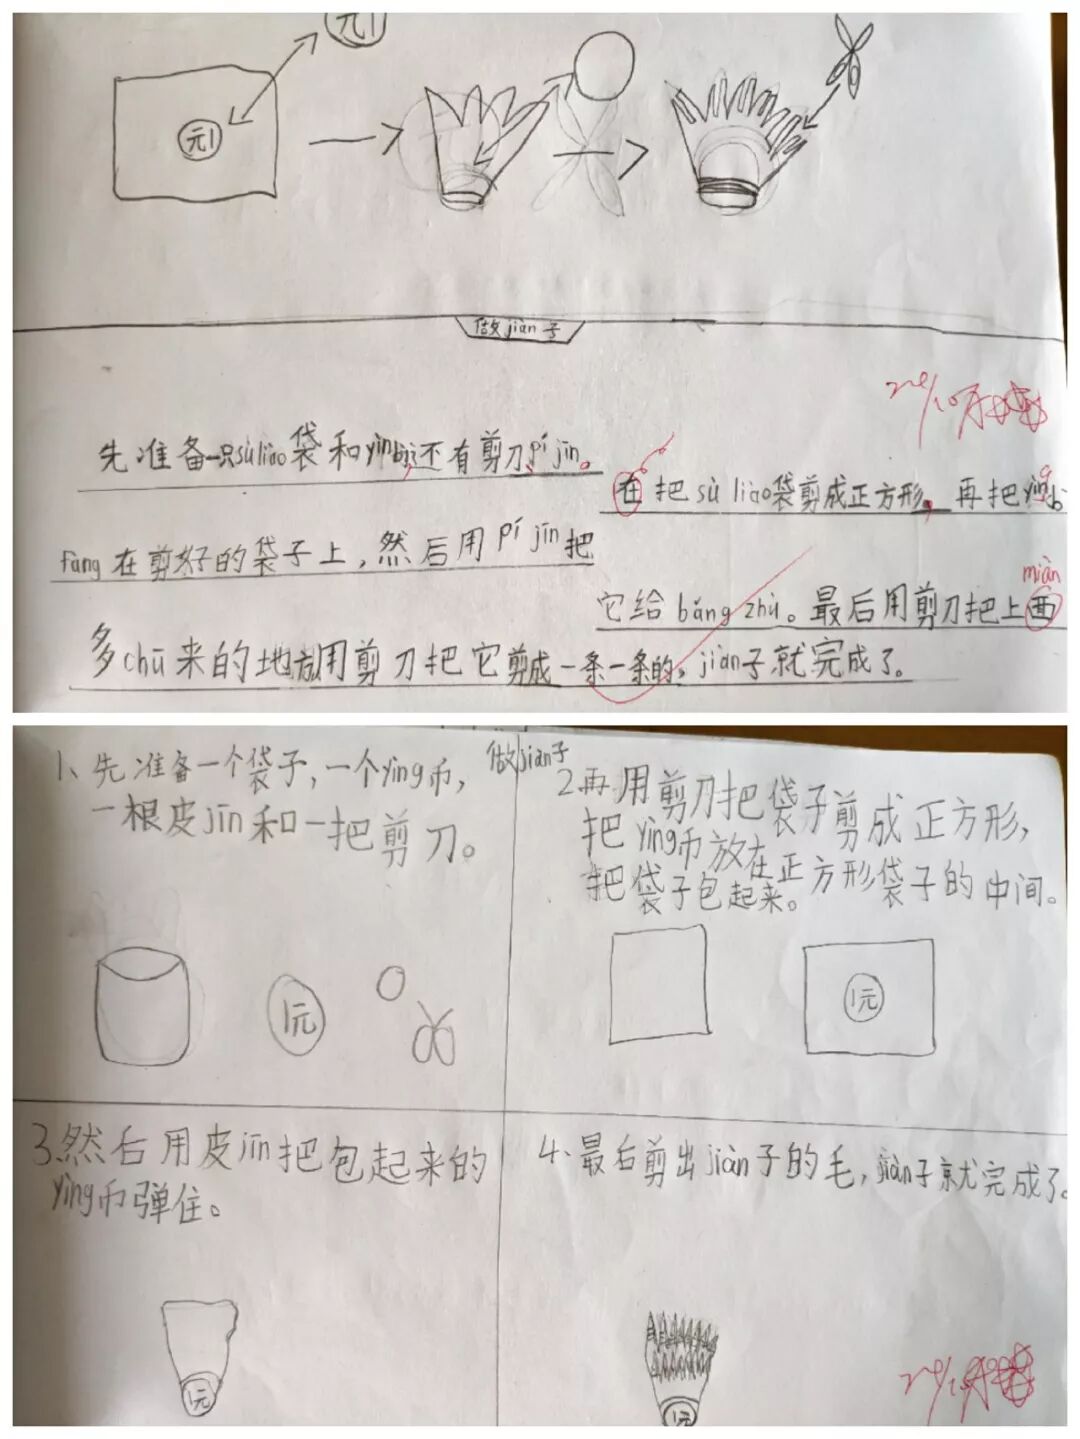 元1
元1
做jiàn子
先准备一只sù liào袋和yìnbì还有剪刀pí jīn。
在把sù liào袋剪成正方形，再把yìngbì
fàng在剪好的袋子上，然后用pí jīn把
它给bǎng zhù。最后用剪刀把上面
miàn
多chū来的地方用剪刀把它剪成一条一条的，jiàn子就完成了。
做jiàn子
1、先准备一个袋子，一个yìng币，
一根皮jīn和一把剪刀。
2再用剪刀把袋子剪成正方形，
把yìng币放在正方形袋子的中间。
把袋子包起来。
1元
1元
3.然后用皮jīn把包起来的
yìng币弹住。
4、最后剪出jiàn子的毛，jiàn子就完成了。
1元
1元